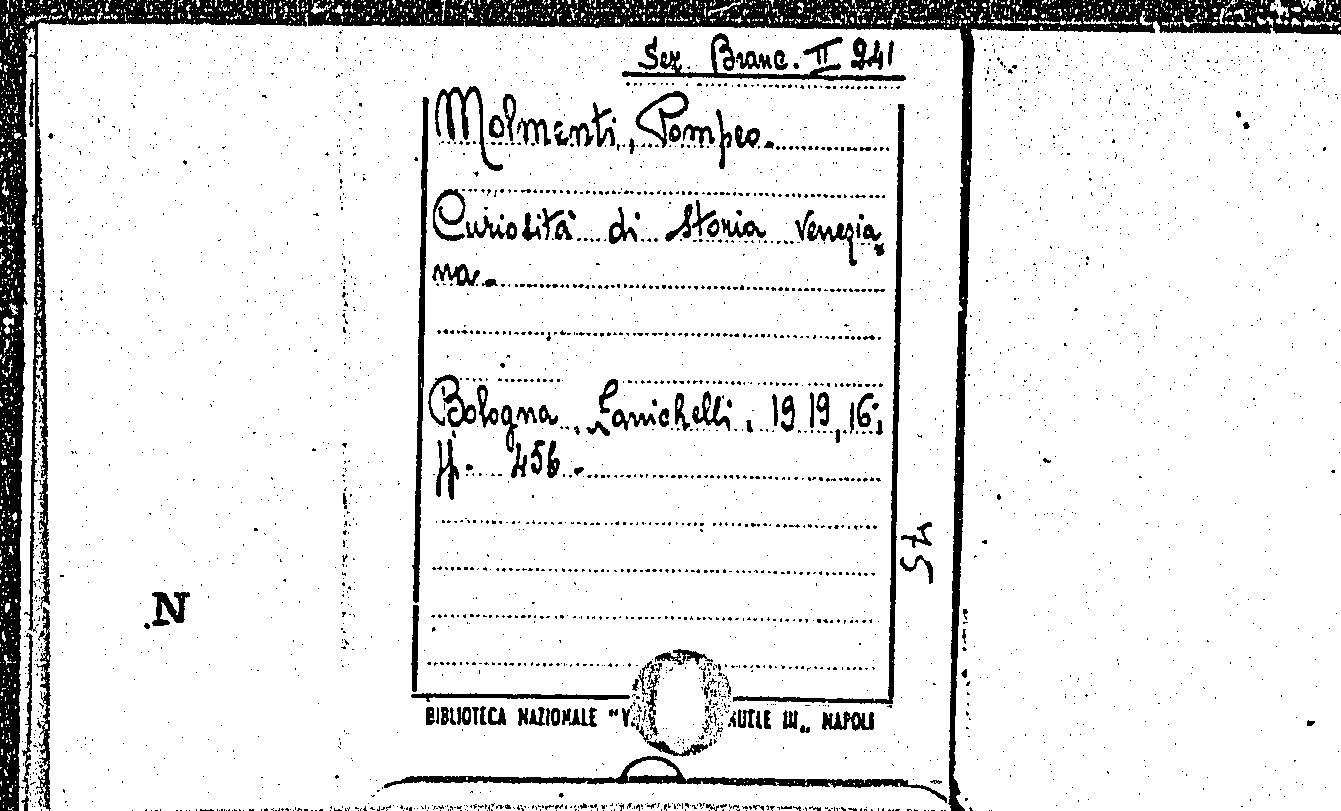 Sez. Branc. II 241
Molmenti, Pompeo.
Curiosità di storia venezia
na.
Bologna, Zanichelli, 1919, 16;
pp. 456.
St
N
BIBLIOTECA NAZIONALE "V UELE III„ NAPOLI